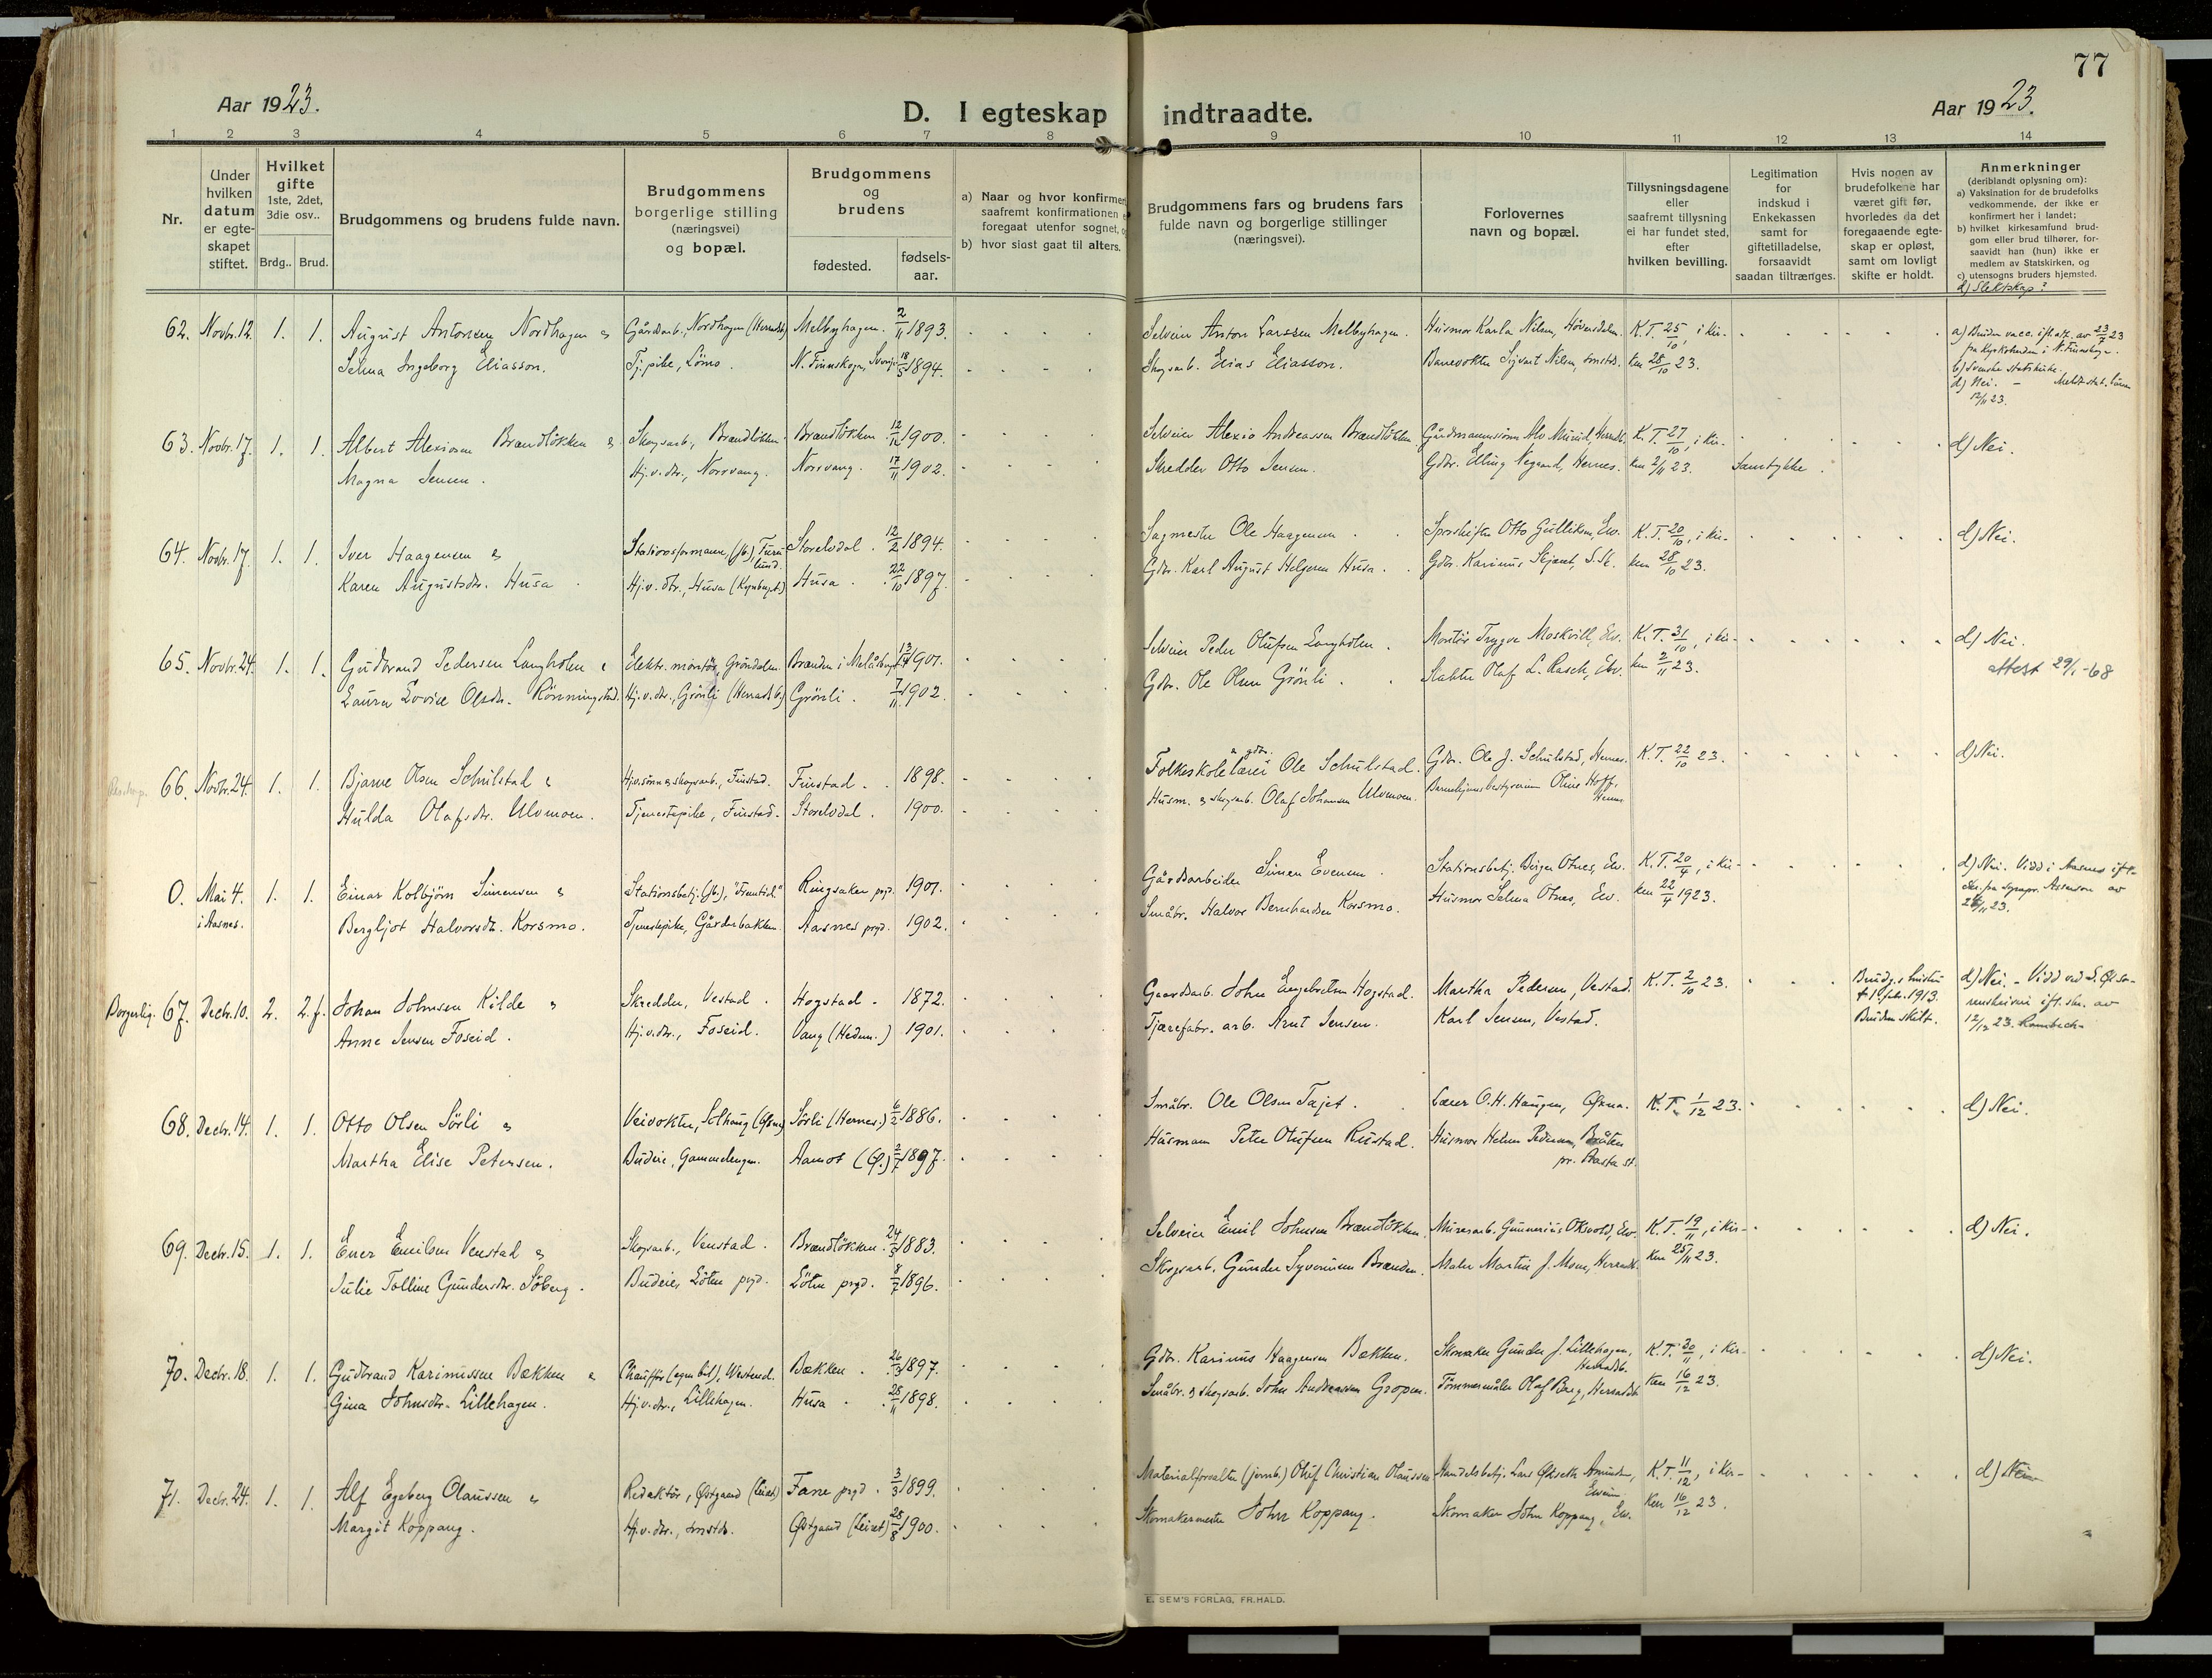 77
Aar 1923.
D. I egteskap indtraadte.
Aar 1923.
1 2 3 4 5 6 7 8 9 10 11 12 13 14
Nr.
Under hvilken datum er egte-skapet stiftet.
Hvilket gifte 1ste, 2det, 3die osv..
Brdg.. Brud.
Brudgommens og brudens fulde navn.
Brudgommens borgerlige stilling (næringsvei) og bopæl.
Brudgommens og brudens
fødested.
fødsels-aar.
a) Naar og hvor konfirmer
saafremt konfirmationen
foregaat utenfor sognet,
b) hvor sidst gaat til alters.
Brudgommens fars og brudens fars fulde navn og borgerlige stillinger (næringsvei).
Forlovernes navn og bopæl.
Tillysningsdagene eller saafremt tillysning ei har fundet sted, efter hvilken bevilling.
Legitimation for indskud i Enkekassen samt for giftetilladelse, forsaavidt saadan tiltrænges.
Hvis nogen av brudefolkene har været gift før, hvorledes da det foregaaende egte-skap er opløst, samt om lovligt skifte er holdt.
Anmerkninger
(deriblandt oplysning om):
a) Vaksination for de brudefolks
vedkommende, der ikke er
konfirmert her i landet;
b) hvilket kirkesamfund brud-
gom eller brud tilhører, for-
saavidt han (hun) ikke er
medlem av Statskirken, og
c) utensogns bruders hjemsted.
d) Slektskap?
62. Novbr. 12. 1. 1. August Antonsen Nordhagen & Gårdsarb., Nordhagen Melbyhagen. 2/11 1893. Selveier Anton Larssen Melbyhagen. Husmor Karla Nilsen, K.T. 25/10, i kir-
Selma Ingeborg Eliasson. Tj.pike, Lömo. N. Finnskoga, Sverige 18/5 1894. Skogsarb. Elias Eliasson. Banevokter Sigvart Nilsen, ken 28/10 23.
b) Svenske statskirke.
d) Nei.
63. Novbr. 17. 1. 1. Albert Alexisen Brændløkken & Skogsarb., Brændløkken. Brændløkken. 12/12 1900. Selveier Alexis Andreassen Brændløkken. K.T. 27/10, i kir- d) Nei.
Magna Jensen. Hj.v.dtr., Norrvang. Norrvang. 17/11 1902. Skredder Otto Jensen. Gdbr. Elling Negaard, Hernes. ken 2/11 23. Samtykke.
64. Novbr. 17. 1. 1. Iver Haagensen & Stationsformann, (jb.), Storelvdal. 12/2 1894. Sagmester Ole Haagensen. Otto Gulliksen, Elv. K.T. 20/10, i kir- d) Nei.
Karen Augustsdtr. Husa. Hj.v.dtr., Husa Husa. 22/10 1897. Gdbr. Karl August Helgesen Husa. Gdbr. Karinus ken 28/10 23.
65. Novbr. 24. 1. 1. Gudbrand Pedersen Langholen & Elektr. montör, Gröndalen. Brænden i 1901. Selveier Peder Olufsen Langholen. Montör Trygve Moskvill, Elv. K.T. 31/10, i kir- d) Nei.
Laura Lovise Olsdtr. Rönningstad. Hj.v.dtr., Grönli (Heradsb.) Grönli. 7/11 1902. Gdbr. Ole Olsen Grönli. Olaf L. Rasch, Elv. ken 2/11 23.
attest 29/1-68
66. Novbr. 24. 1. 1. Bjarne Olsen Schulstad & Hjv.sönn & skogsarb., Finstad. Finstad. 1898. Folkeskolelærer & gdbr. Ole Schulstad. Gdbr. Ole J. Schulstad, Hernes. K.T. 22/10 23. d) Nei.
Hulda Olafsdtr. Ulvmoen. Tjenestepike, Finstad. Storelvdal. 1900. Husm. & skogsarb. Olaf Johansen Ulvmoen. Barnehjemsbestyrerinne Oline Hoff, Hernes
0. Mai 4. 1. 1. Einar Kolbjörn Simensen & Stationsbetj. (jb.), "Framtid". Ringsaker prgd. 1901. Gårdsarbeider Simen Evensen. Stationsbetj. Birger Otnes, Elv. K.T. 20/4, i kir- d) Nei. Vidd i Aasnes
i Aasnes. Bergljot Halvorsdtr. Korsmo. Tjenestepike, Gårderbakken. Aasnes prgd. 1902. Småbr. Halvor Bernhardsen Korsmo. Husmor Selma Otnes, Elv. ken 22/4 1923.
Borgerlig. 67. Decbr. 10. 2. 2. f. Johan Johnsen Kilde & Skredder, Vestad. Hogstad. 1872. Gaardsarb. John Engebretsen Hogstad. Martha Pedersen, Vestad. K.T. 2/10 23. Brudg.s hustru † 1. febr. 1913. d) Nei. – Vidd ved
Anne Jensen Foseid. Hj.v.dtr., Foseid. Vang (Hedm.) 1901. Tjærefabr. arb. Arnt Jensen. Karl Jensen, Vestad. Bruden skilt. 12/12 23.
68. Decbr. 14. 1. 1. Otto Olsen Sörli & Veivokter, Solhaug Sörli (Hernes.) 6/2 1886. Småbr. Ole Olsen Tajet. Lærer O.H. Haugen, Øksna. K.T. 1/12 23. d) Nei.
Martha Elise Petersen. Budeie, Gammelengen. Aamot (Ø.) 2/7 1897. Husmann Peter Olufsen Rustad. Husmor Helene Pedersen, Bråten pr. Aasta st.
69. Decbr. 15. 1. 1. Ener Emilsen Venstad & Skogsarb., Venstad. Brændløkken. 24/5 1883. Selveier Emil Johnsen Brændløkken. Murerarb. Gunnerius Oksvold, Elv. K.T. 19/11, i kir- d) Nei.
Julie Tolline Gundersdtr. Söberg. Budeie, Löten prgd. Löten prgd. 8/7 1896. Skogsarb. Gunder Syversen Brænden. Maler Martin J. Moen, ken 25/11 23.
70. Decbr. 18. 1. 1. Gudbrand Karinussen Bækken & Chauffør (egen bil), Westend. Bækken. 26/3 1897. Gdbr. Karinus Haagensen Bækken. Skomaker Gunder J. Lillehagen, Heradsb. K.T. 30/11, i kir- d) Nei.
Gina Johnsdtr. Lillehagen. Hj.v.dtr., Lillehagen. Husa. 28/11 1898. Småbr. & skogsarb. John Andreassen Gropen. Tömmermåler Olaf Berg, Heradsb. ken 16/12 23.
71. Decbr. 24. 1. 1. Alf Egeberg Olaussen & Redaktör, Østgaard (Leiret) Fane prgd. 3/3 1899. Materialforvalter (jernb.) Oluf Christian Olaussen Handelsbetj. Lars Økseth Amundsen, Elverum K.T. 11/12, i kir- d) Nei.
Margit Koppang. Hj.v.dtr., smstds. Østgaard (Leiret) 28/8 1900. Skomakermester John Koppang. Skomaker John Koppang, Elv. ken 16/12 23.
E. SEM'S FORLAG, FR.HALD.